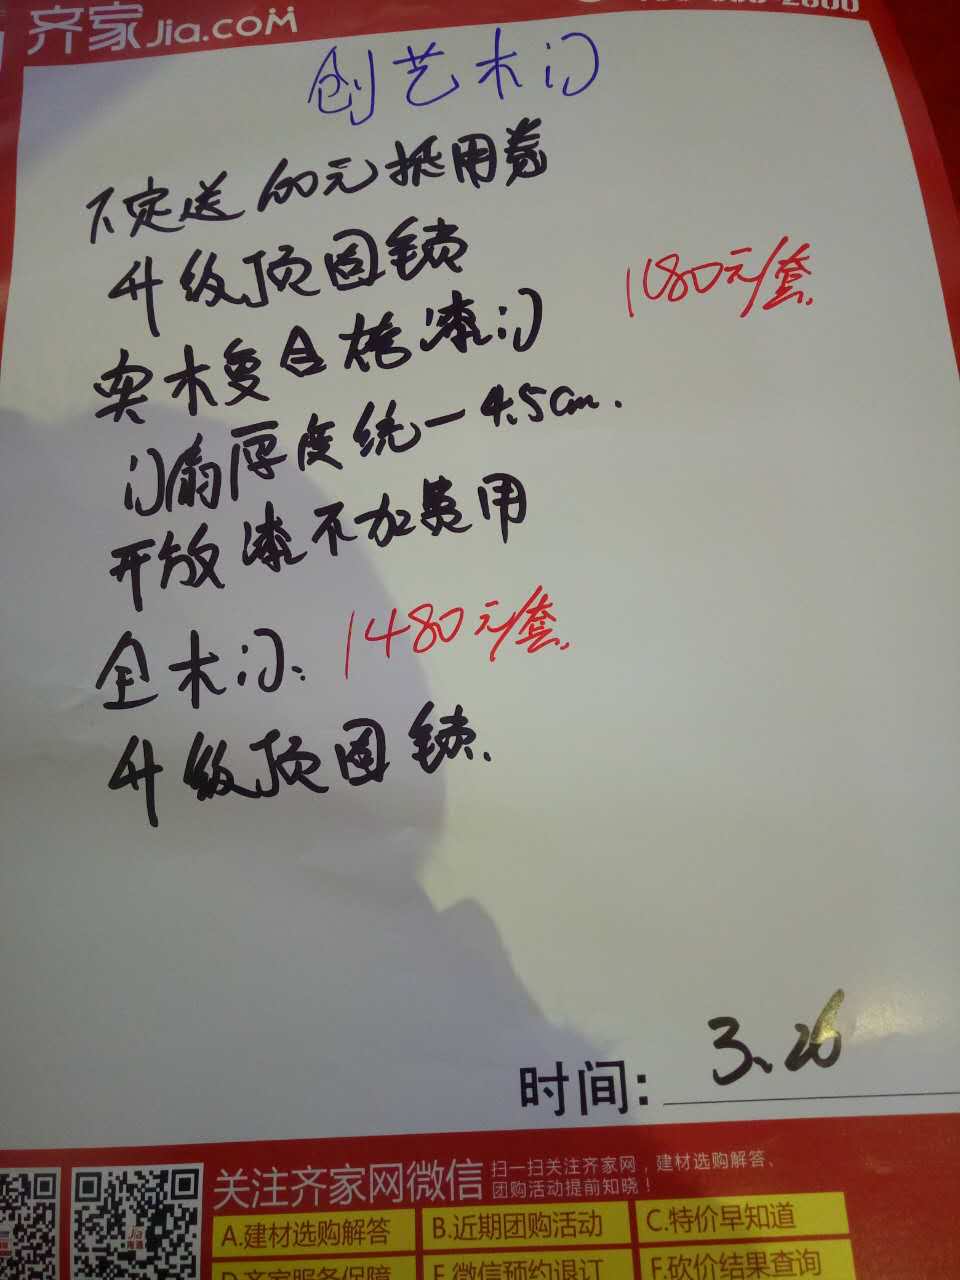 齐家Jia.com
创艺木门
下定送100元抵用券
升级顶固锁
1080元/套
实木复合烤漆门
门扇厚度统一4.5cm.
开放漆不加费用
全木门: 1480元/套
升级顶固锁.
3.26
时间:
关注齐家网微信
扫一扫关注齐家网，建材选购解答、
团购活动提前知晓！
A.建材选购解答 B.近期团购活动 C.特价早知道
D.齐家服务保障 E.微信预约退订 F.砍价结果查询